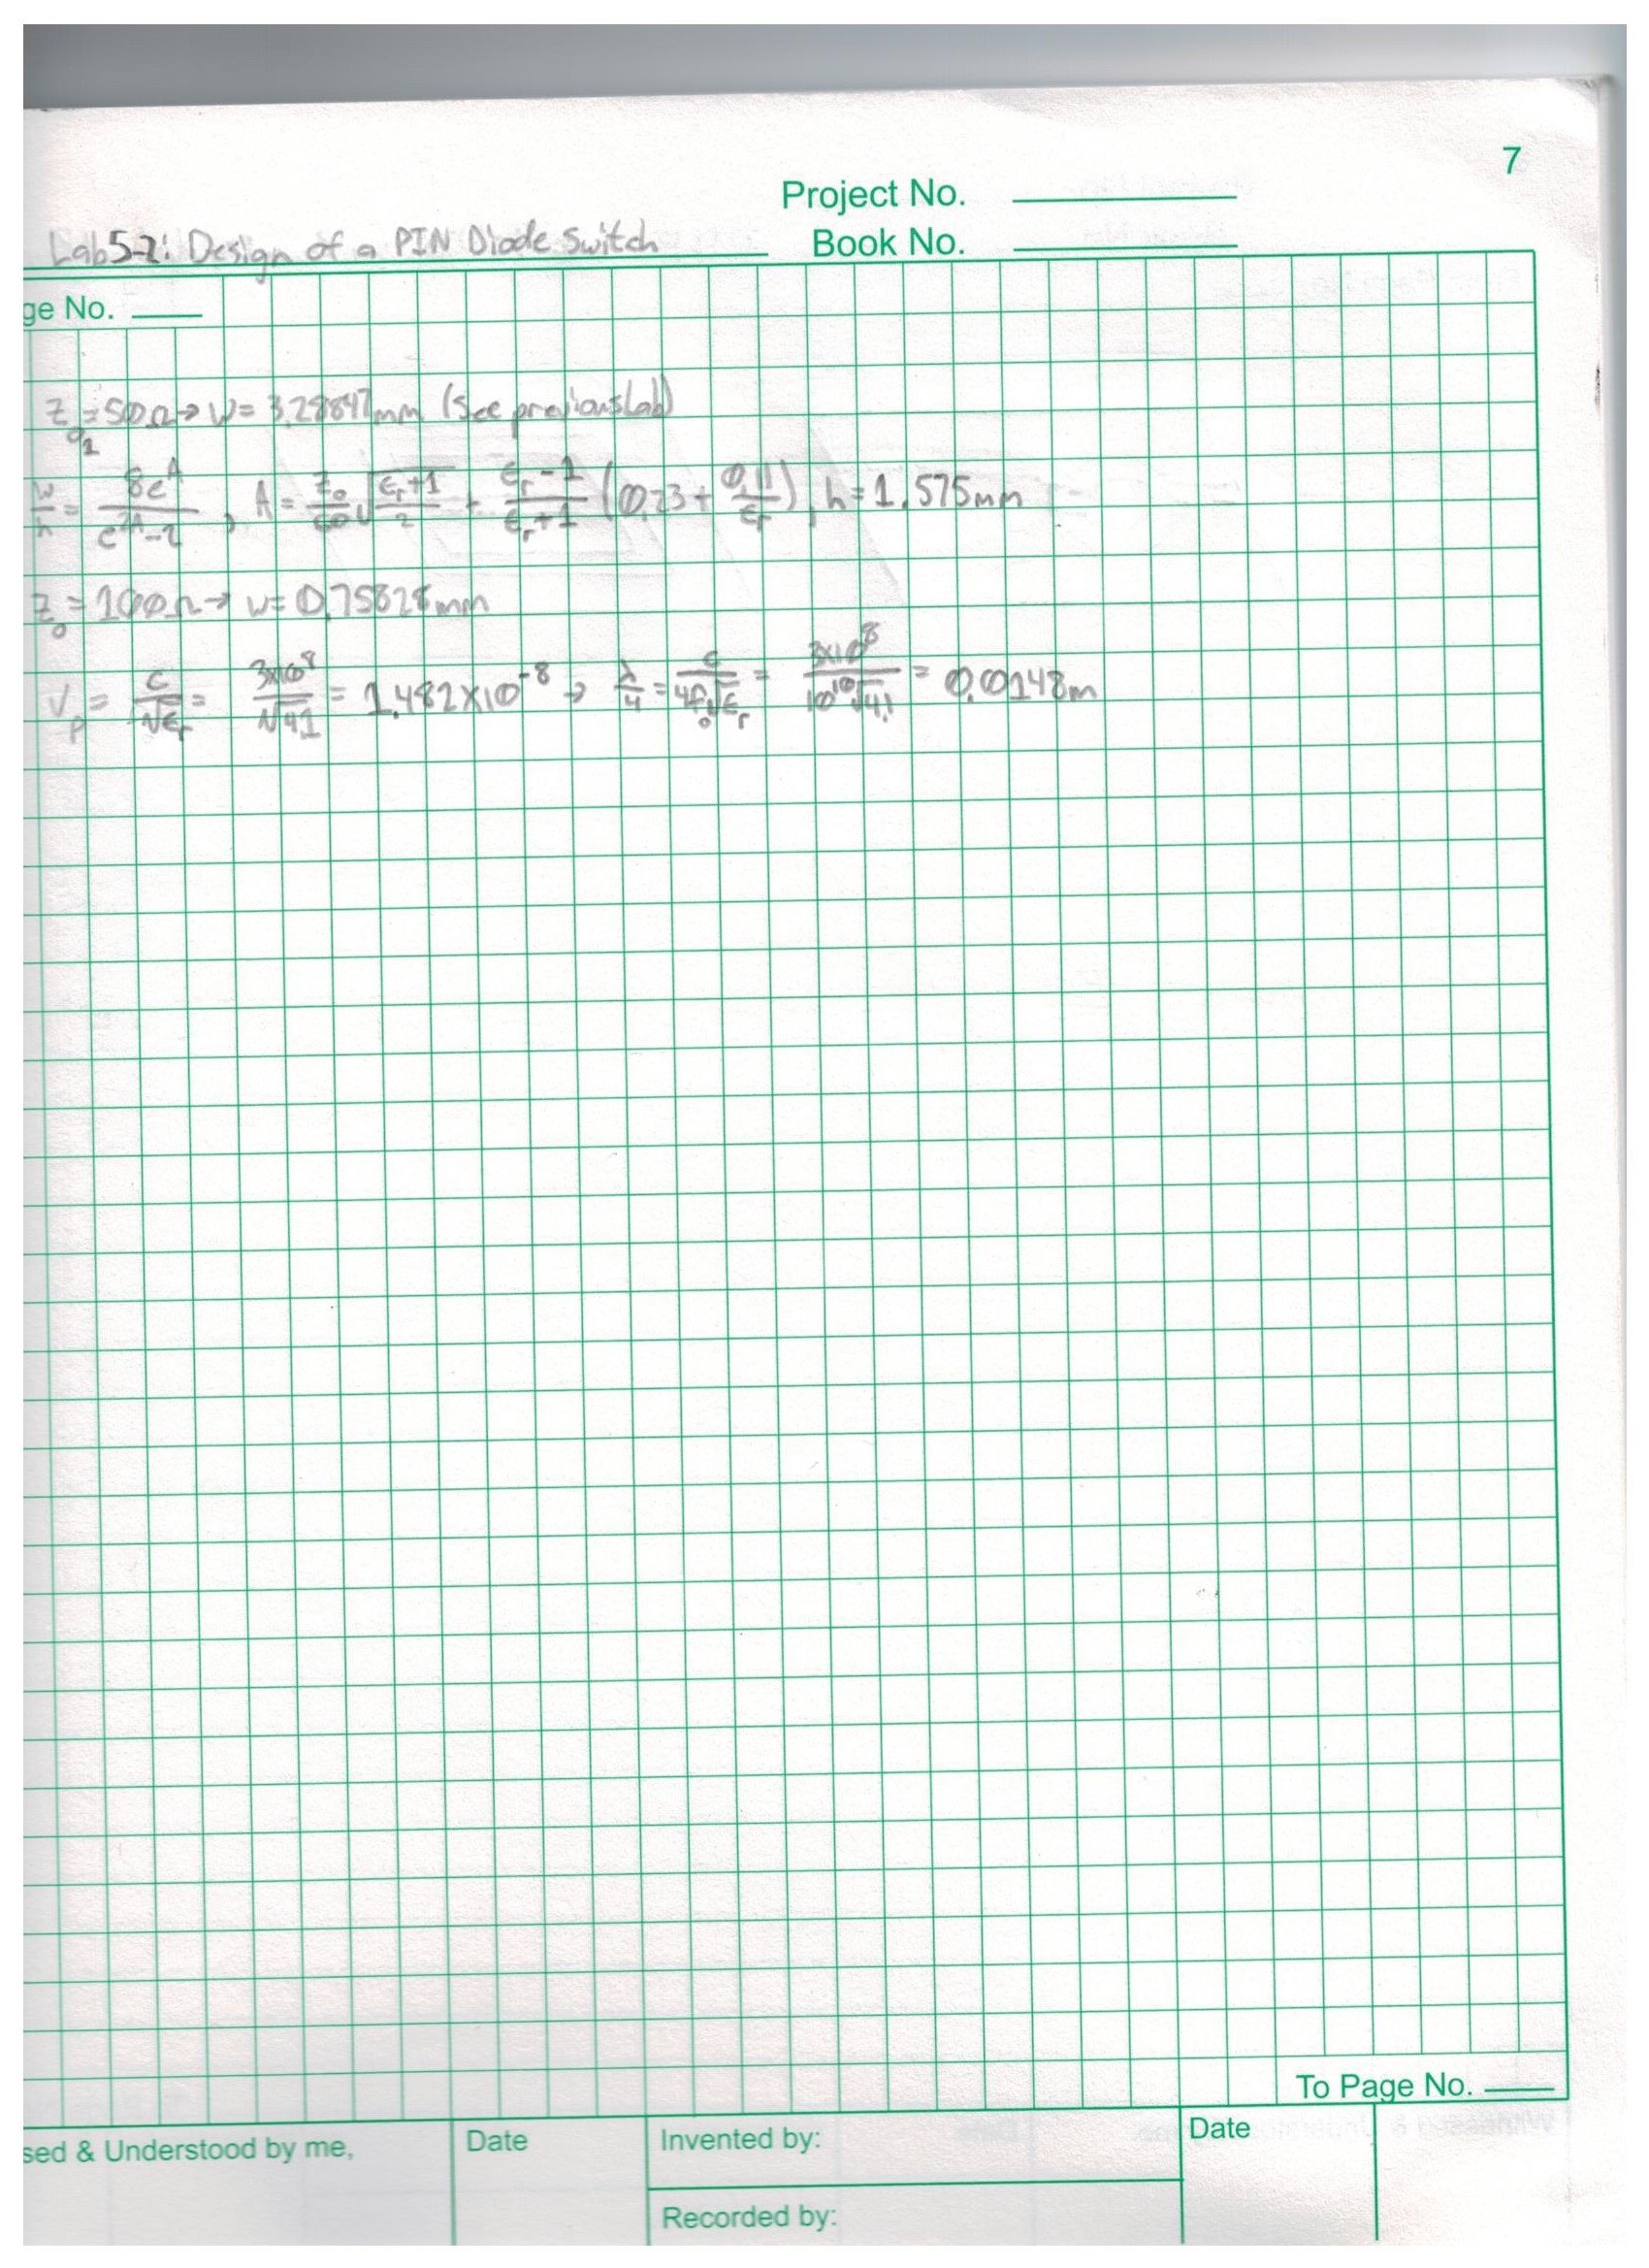 7
Project No.
Lab 5-2: Design of a PIN Diode Switch
Book No.
ge No.
Z₀₁ = 50Ω → W = 3.28847mm (See previous Lab)
w/h = 8e^A / (e^2A - 2), A = Z₀/60 √((εr+1)/2) + (εr-1)/(εr+1) (0.23 + 0.11/εr), h = 1.575mm
Z₀ = 100Ω → w = 0.75828mm
Vp = c/√εr = 3x10^8/√4.1 = 1.482x10^-8 → λ/4 = c/(4f₀√εr) = 3x10^8/(10^10 √4.1) = 0.0148m
To Page No.
sed & Understood by me,
Date
Invented by:
Date
Recorded by: